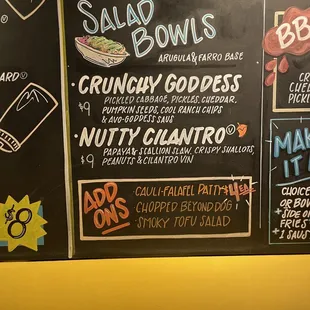 SALAD
BOWLS
ARUGULA & FARRO BASE
·CRUNCHY GODDESS
$9
PICKLED CABBAGE, PICKLES, CHEDDAR,
PUMPKIN SEEDS, COOL RANCH CHIPS
& AVO-GODDESS SAUS
·NUTTY CILANTRO
$9
PAPAYA & SCALLION SLAW, CRISPY SHALLOTS,
PEANUTS & CILANTRO VIN
ADD
ONS
CAULI-FALAFEL PATTY
CHOPPED BEYOND DOG
SMOKY TOFU SALAD
$8
BB
CHED
PICKL
MAK
IT
CHOICE
OR BOW
+ SIDE O
FRIES
+ 1 SAUS